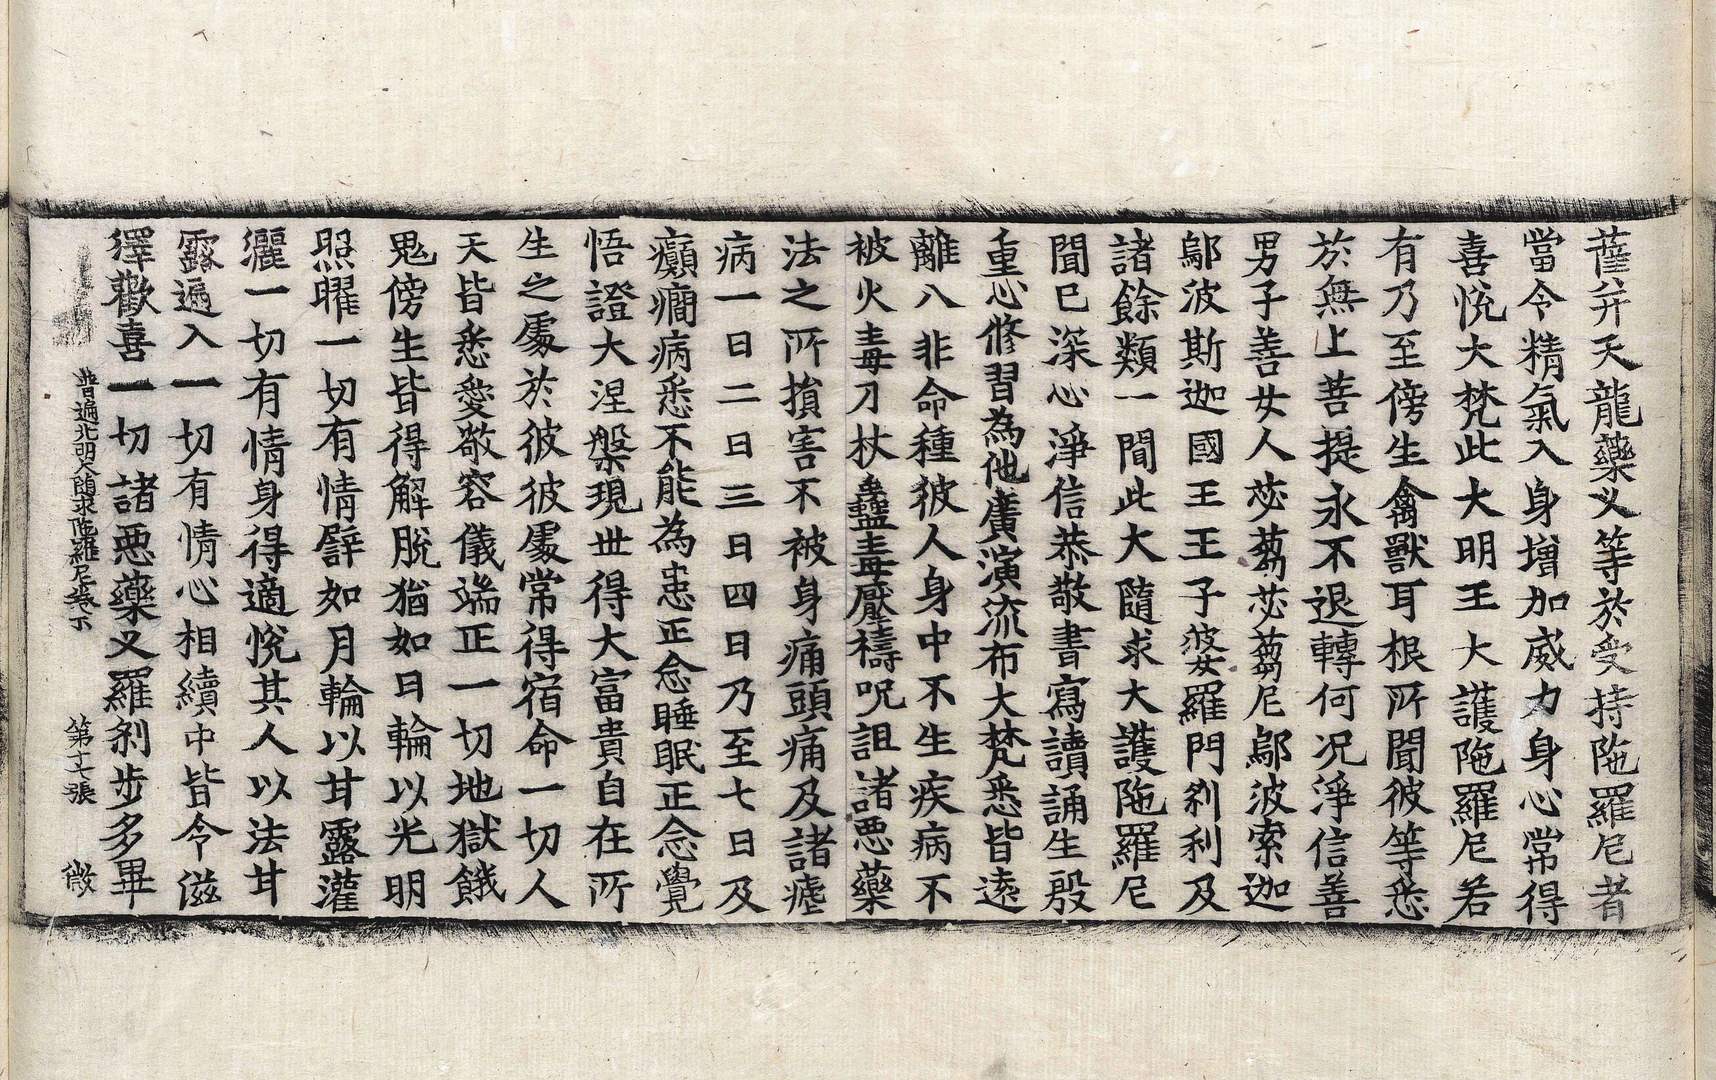 薩幷天龍藥叉等於受持陁羅尼者
當令精氣入身增加威力身心常得
喜悅大梵此大明王大護陁羅尼若
有乃至傍生禽獸耳根所聞彼等悉
於無上菩提永不退轉何況淨信善
男子善女人苾蒭苾蒭尼鄔波索迦
鄔波斯迦國王王子婆羅門刹利及
諸餘類一聞此大隨求大護陁羅尼
聞已深心淨信恭敬書寫讀誦生殷
重心修習為他廣演流布大梵悉皆遠
離八非命種彼人身中不生疾病不
被火毒刀杖蠱毒壓禱呪詛諸惡藥
法之所損害不被身痛頭痛及諸瘧
病一日二日三日四日乃至七日及
癲癇病悉不能為患正念睡眠正念覺
悟證大涅槃現世得大富貴自在所
生之處於彼彼處常得宿命一切人
天皆悉愛敬容儀端正一切地獄餓
鬼傍生皆得解脫猶如日輪以光明
照曜一切有情譬如月輪以甘露灌
灑一切有情身得適悅其人以法甘
露遍入一切有情心相續中皆令滋
澤歡喜一切諸惡藥叉羅刹步多畢
普遍光明大隨求陁羅尼卷下 第十七張 微